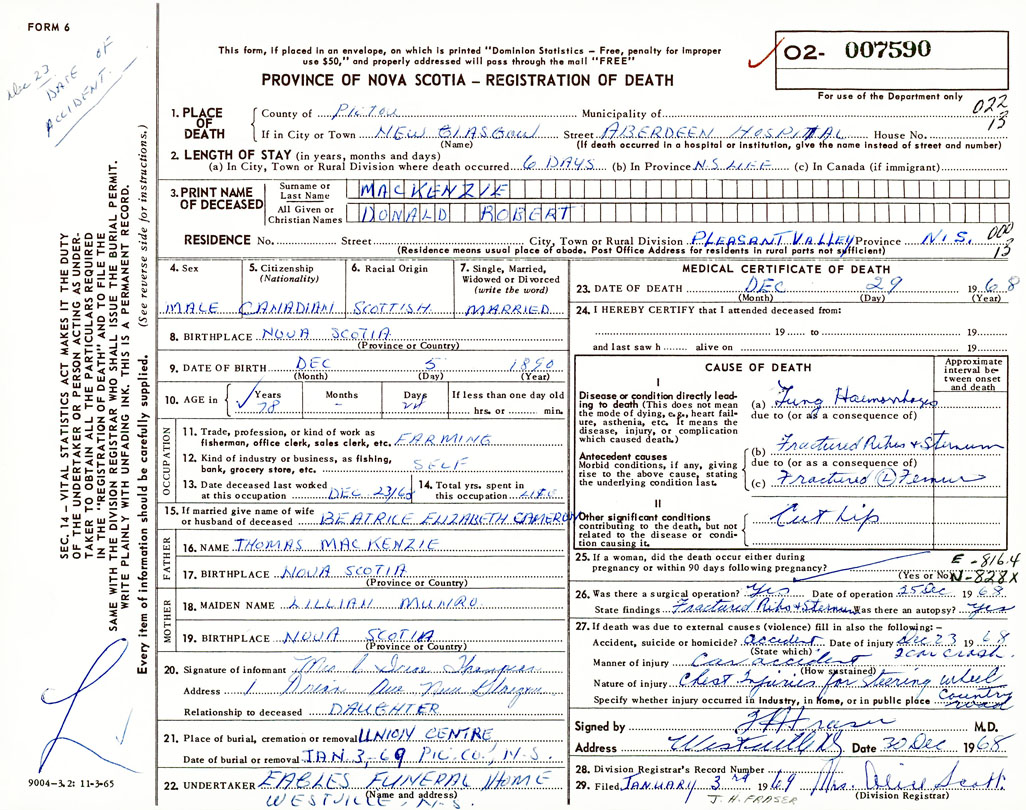 FORM 6
Dec 23
DATE OF
ACCIDENT.
This form, if placed in an envelope, on which is printed "Dominion Statistics – Free, penalty for improper
use $50," and properly addressed will pass through the mail "FREE"
PROVINCE OF NOVA SCOTIA – REGISTRATION OF DEATH
O2- 007590
For use of the Department only
022
13
1. PLACE OF DEATH
County of PICTOU Municipality of
If in City or Town NEW GLASGOW Street ABERDEEN HOSPITAL House No.
(Name) (If death occurred in a hospital or institution, give the name instead of street and number)
2. LENGTH OF STAY (in years, months and days)
(a) In City, Town or Rural Division where death occurred 6 DAYS (b) In Province N.S LIFE (c) In Canada (if immigrant)
3. PRINT NAME OF DECEASED
Surname or Last Name MACKENZIE
All Given or Christian Names DONALD ROBERT
RESIDENCE No. Street City, Town or Rural Division PLEASANT VALLEY Province N.S.
(Residence means usual place of abode. Post Office Address for residents in rural parts not sufficient)
000
13
4. Sex
MALE
5. Citizenship
(Nationality)
CANADIAN
6. Racial Origin
SCOTTISH
7. Single, Married,
Widowed or Divorced
(write the word)
MARRIED
8. BIRTHPLACE NOVA SCOTIA
(Province or Country)
9. DATE OF BIRTH DEC 5 1890
(Month) (Day) (Year)
10. AGE in
Years
78
Months
-
Days
24
If less than one day old
hrs. or min.
OCCUPATION
11. Trade, profession, or kind of work as
fisherman, office clerk, sales clerk, etc. FARMING
12. Kind of industry or business, as fishing,
bank, grocery store, etc. SELF
13. Date deceased last worked
at this occupation DEC 23/68
14. Total yrs. spent in
this occupation LIFE
15. If married give name of wife
or husband of deceased BEATRICE ELIZABETH CAMERON
FATHER
16. NAME THOMAS MACKENZIE
17. BIRTHPLACE NOVA SCOTIA
(Province or Country)
MOTHER
18. MAIDEN NAME LILLIAN MUNRO
19. BIRTHPLACE NOVA SCOTIA
(Province or Country)
20. Signature of informant Mrs Thompson
Address Ave New Glasgow
Relationship to deceased DAUGHTER
21. Place of burial, cremation or removal UNION CENTRE
Date of burial or removal JAN 3, 69 PIC. CO., N.S.
22. UNDERTAKER EAGLES FUNERAL HOME
(Name and address)
WESTVILLE, N.S.
MEDICAL CERTIFICATE OF DEATH
23. DATE OF DEATH DEC 29 1968
(Month) (Day) (Year)
24. I HEREBY CERTIFY that I attended deceased from:
19 to 19
and last saw h alive on 19
CAUSE OF DEATH
Approximate
interval be-
tween onset
and death
I
Disease or condition directly lead-
ing to death (This does not mean
the mode of dying, e.g., heart fail-
ure, asthenia, etc. It means the
disease, injury, or complication
which caused death.)
(a) Lung Haemorrhages
due to (or as a consequence of)
Antecedent causes
Morbid conditions, if any, giving
rise to the above cause, stating
the underlying condition last.
(b) Fractured Ribs & Sternum
due to (or as a consequence of)
(c) Fractured (L) Femur
II
Other significant conditions
contributing to the death, but not
related to the disease or condi-
tion causing it.
Cut Lip
25. If a woman, did the death occur either during
pregnancy or within 90 days following pregnancy?
(Yes or No)
E-816.4
N-828X
26. Was there a surgical operation? Yes Date of operation 25 Dec 1968
State findings Fractured Ribs & Sternum Was there an autopsy? Yes
27. If death was due to external causes (violence) fill in also the following: –
Accident, suicide or homicide? accident Date of injury Dec 23 1968
(State which)
Manner of injury Car accident 2 car crash.
(How sustained)
Nature of injury Chest injuries from steering wheel
Specify whether injury occurred in Industry, in Home, or in public place Country road
Signed by Fraser M.D.
Address Westville N.S. Date 30 Dec 1968
28. Division Registrar's Record Number
29. Filed JANUARY 3rd 1969 Mrs. Alice Scott.
(Division Registrar)
J. H. FRASER
SEC. 14 – VITAL STATISTICS ACT MAKES IT THE DUTY
OF THE UNDERTAKER OR PERSON ACTING AS UNDER-
TAKER TO OBTAIN ALL THE PARTICULARS REQUIRED
IN THE "REGISTRATION OF DEATH" AND TO FILE THE
SAME WITH THE DIVISION REGISTRAR WHO SHALL ISSUE THE BURIAL PERMIT.
WRITE PLAINLY WITH UNFADING INK. THIS IS A PERMANENT RECORD.
Every item of information should be carefully supplied. (See reverse side for instructions.)
9004-3.2: 11-3-65